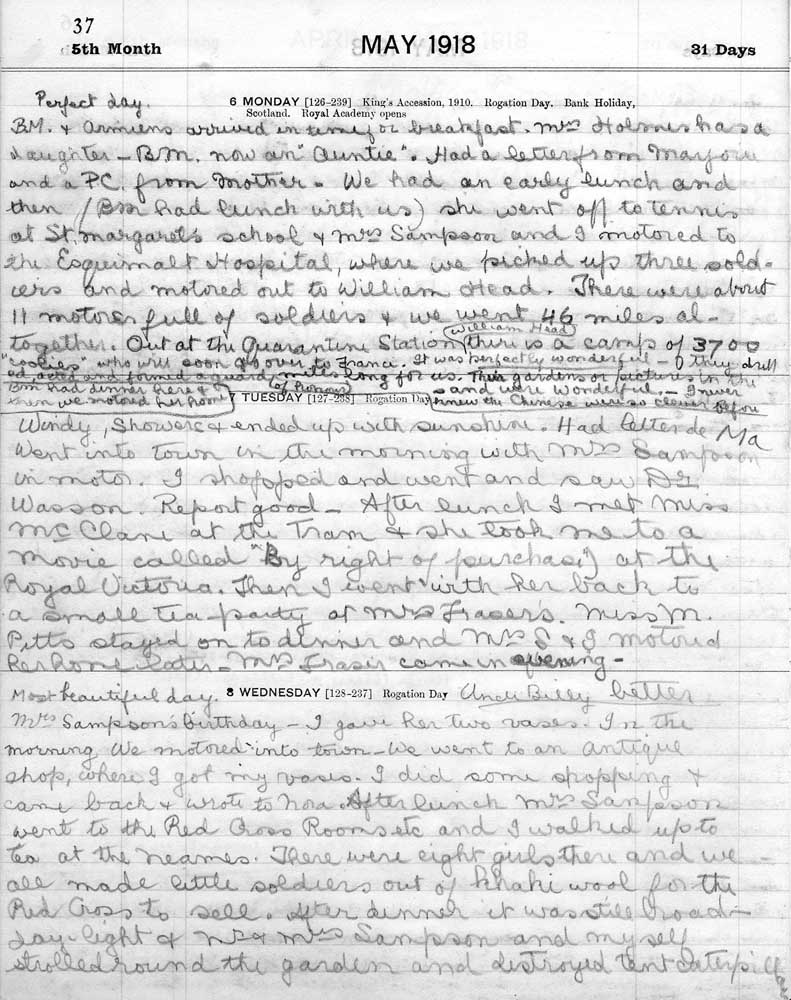 37
5th Month MAY 1918 31 Days
Perfect day. 6 MONDAY [126-239] King's Accession, 1910. Rogation Day. Bank Holiday,
Scotland. Royal Academy opens
B.M. & Armiens arrived in time for breakfast. Mrs Holmes has a
daughter – B.M. now an "Auntie". Had a letter from Marjorie
and a P.C. from Mother – We had an early lunch and
then (BM had lunch with us) she went off to tennis
at St. Margaret's school & Mrs Sampson and I motored to
the Esquimalt Hospital, where we picked up three sold-
iers and motored out to William Head. There were about
11 motores full of soldiers & we went 46 miles al-
together. Out at the Quarantine Station (William Head) there is a camp of 3700
"coolies" who will soon go over to France. It was perfectly wonderful – they drill
ed, acted and formed a guard of honour mile long for us. Their gardens or pictures in the
sand were wonderful. – I never
knew the Chinese were so clever before
BM had dinner here &
then we motored her home
7 TUESDAY [127-238] Rogation Day
Windy, Showers & ended up with sunshine. Had letter de Ma
Went into town in the morning with Mrs Sampson
in motor. I shopped and went and saw Dr
Wasson. Report good – After lunch I met Miss
McClane at the Tram & she took me to a
movie called "By right of purchase") at the
Royal Victoria. Then I went with her back to
a small tea-party at Mrs Fraser's. Miss M.
Pitts stayed on to dinner and Mrs S & I motored
her home later – Mrs Fraser came in evening –
Most beautiful day. 8 WEDNESDAY [128-237] Rogation Day Uncle Billy better
Mrs Sampson's birthday – I gave her two vases. In the
morning We motored into town – We went to an antique
shop, where I got my vases. I did some shopping &
came back & wrote to Nora. After lunch Mrs Sampson
went to the Red Cross Rooms etc and I walked up to
tea at the Neames. There were eight girls there and we
all made little soldiers out of khaki wool for the
Red Cross to sell. After dinner it was still broad-
day-light & Mr & Mrs Sampson and myself
strolled round the garden and destroyed tent caterpill